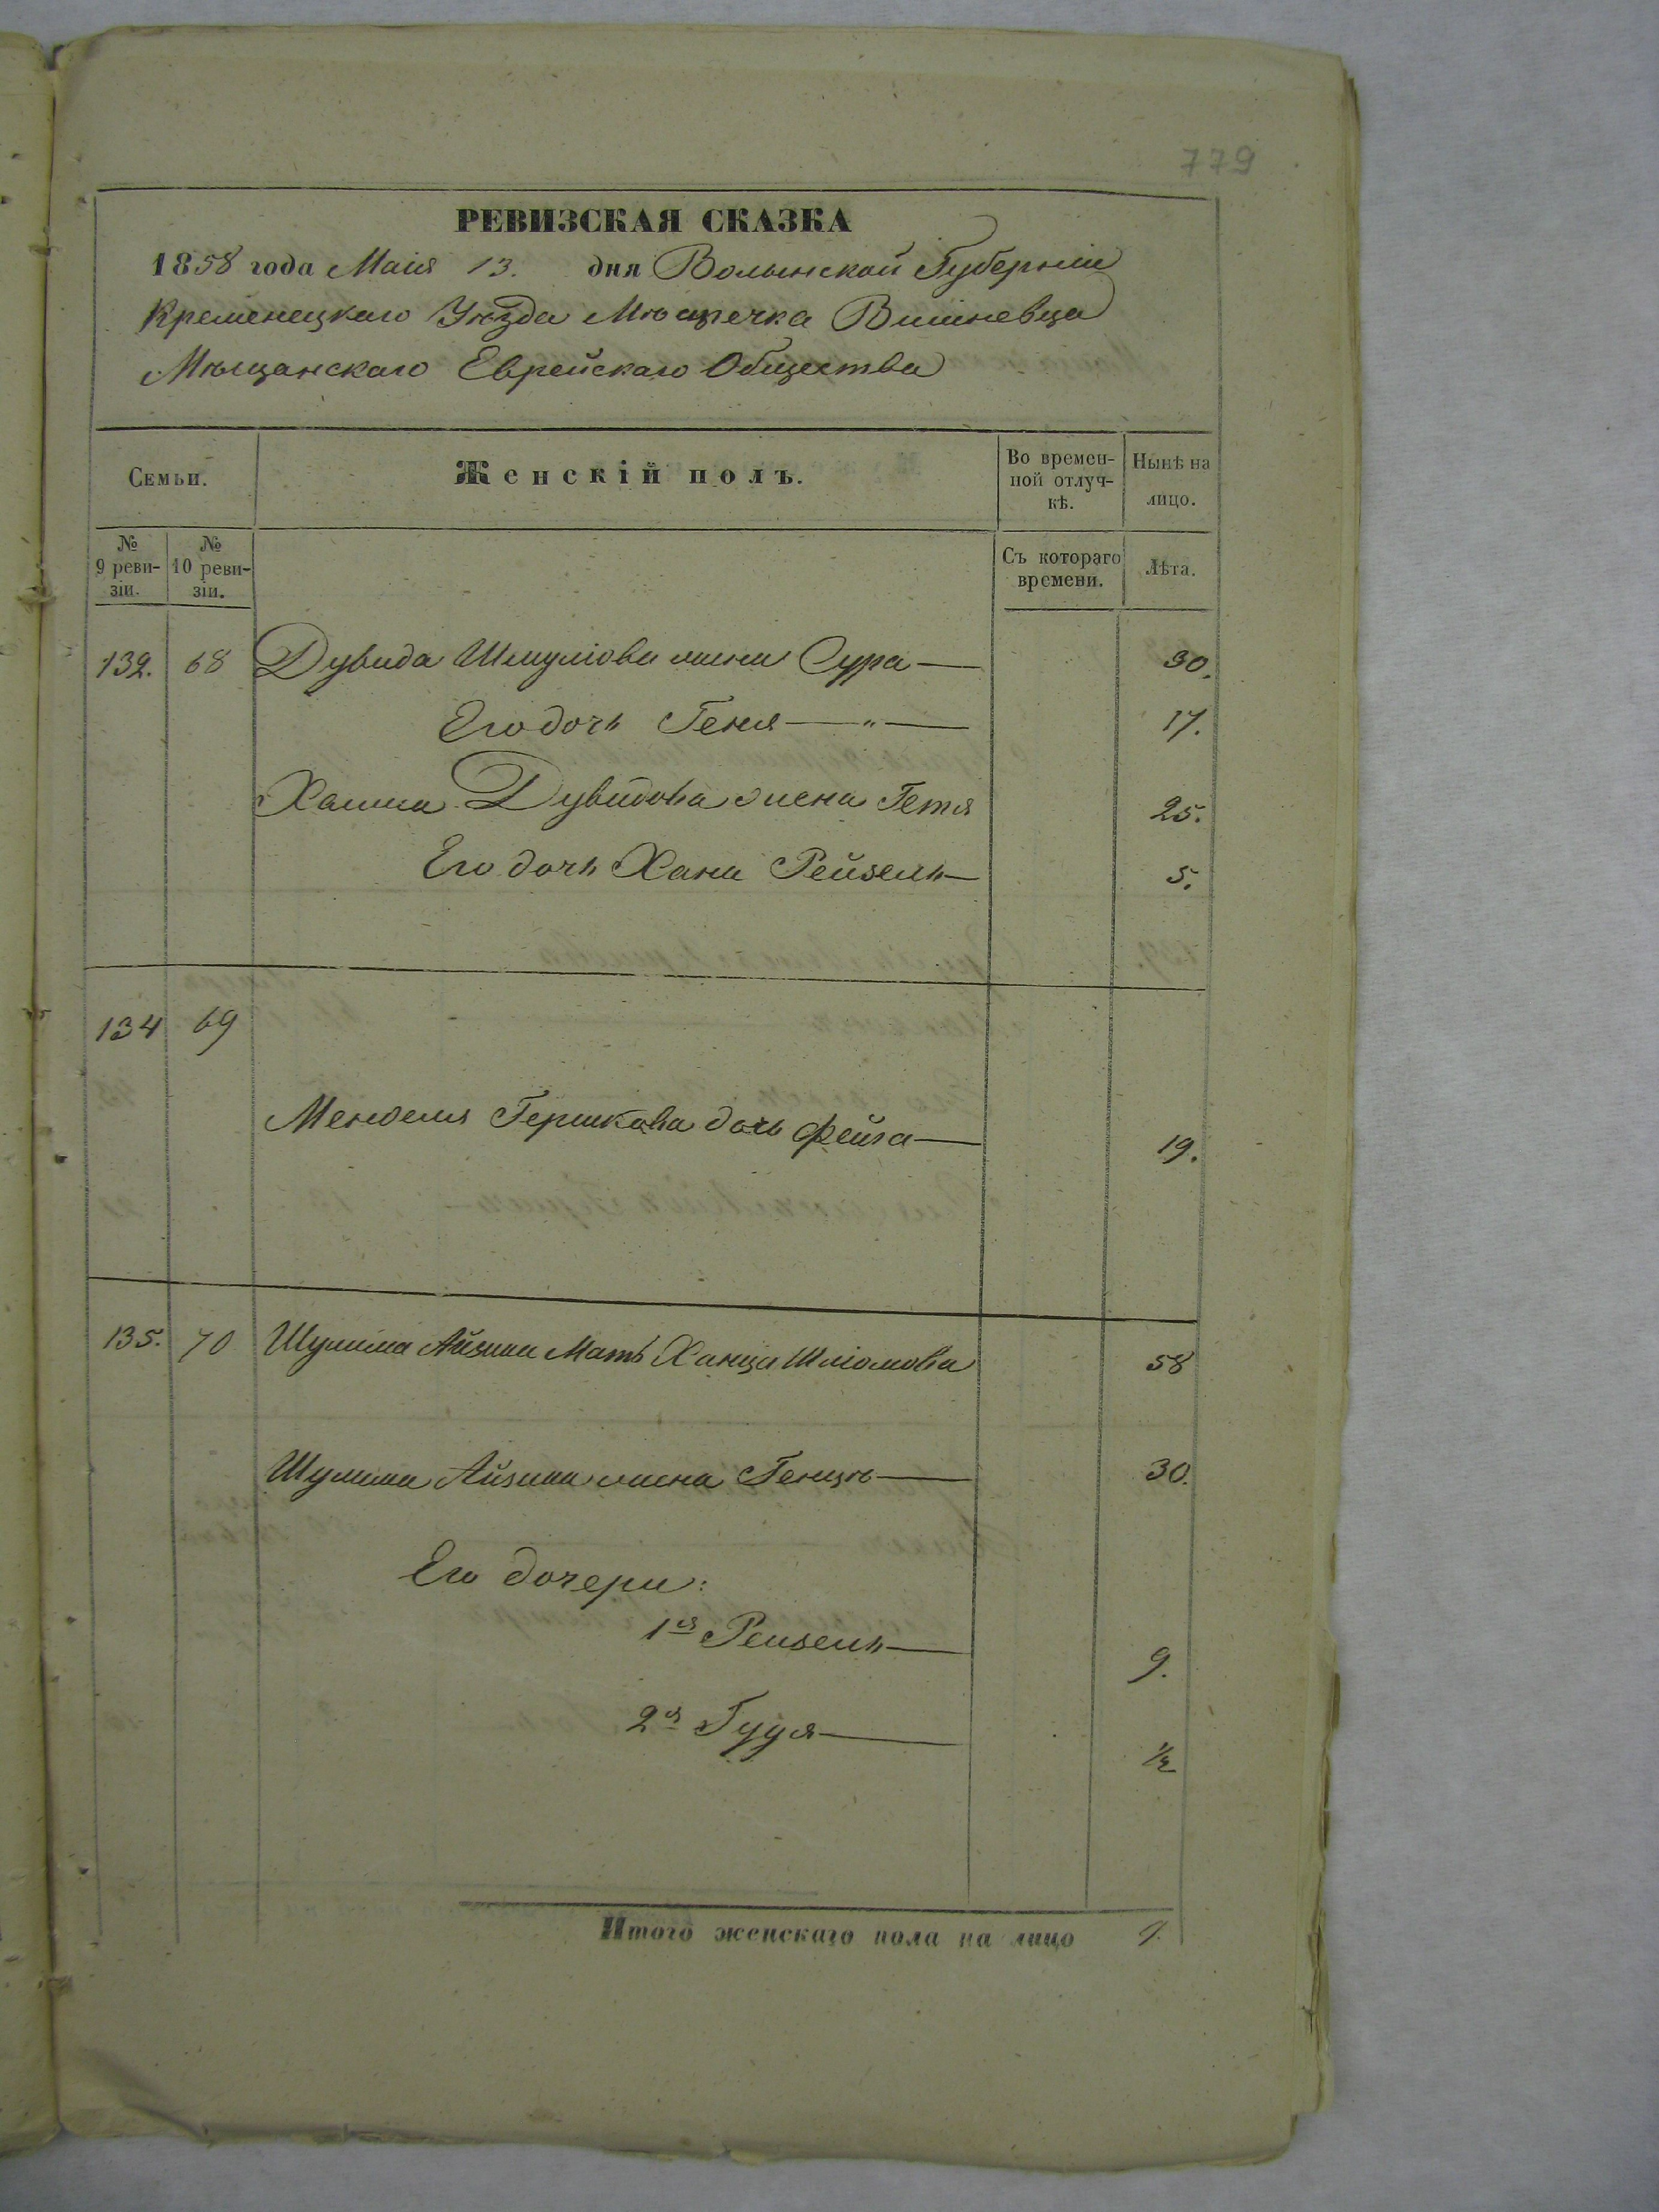 779
РЕВИЗСКАЯ СКАЗКА
1858 года Маія 13. дня Волынской Губерніи
Кременецкаго Уѣзда Мѣстечка Вишневца
Мѣщанскаго Еврейскаго Общества
Семьи.
Женскій полъ.
Во времен-
ной отлуч-
кѣ.
Нынѣ на
лицо.
№
9 реви-
зіи.
№
10 реви-
зіи.
Съ котораго
времени.
Лѣта.
132. 68 Дувида Шмуліова жена Сура — 30.
Его дочь Геня — " — 17.
Хаима Дувидова жена Гетя 25.
Его дочь Хана Рейзель — 5.
134 69
Менделя Гершкова дочь Фейга — 19.
135. 70 Шулима Айзика Мать Ханца Шліомова 58
Шулима Айзика жена Генцъ — 30.
Его дочери:
1я Рейзель — 9.
2я Гудя — 1/2
Итого женскаго пола на лицо 9.